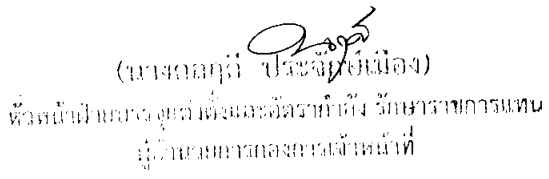 (นางกลฤดี ประจักษ์เมือง)
หัวหน้าฝ่ายบรรจุแต่งตั้งและอัตรากำลัง รักษาราชการแทน
ผู้อำนวยการกองการเจ้าหน้าที่